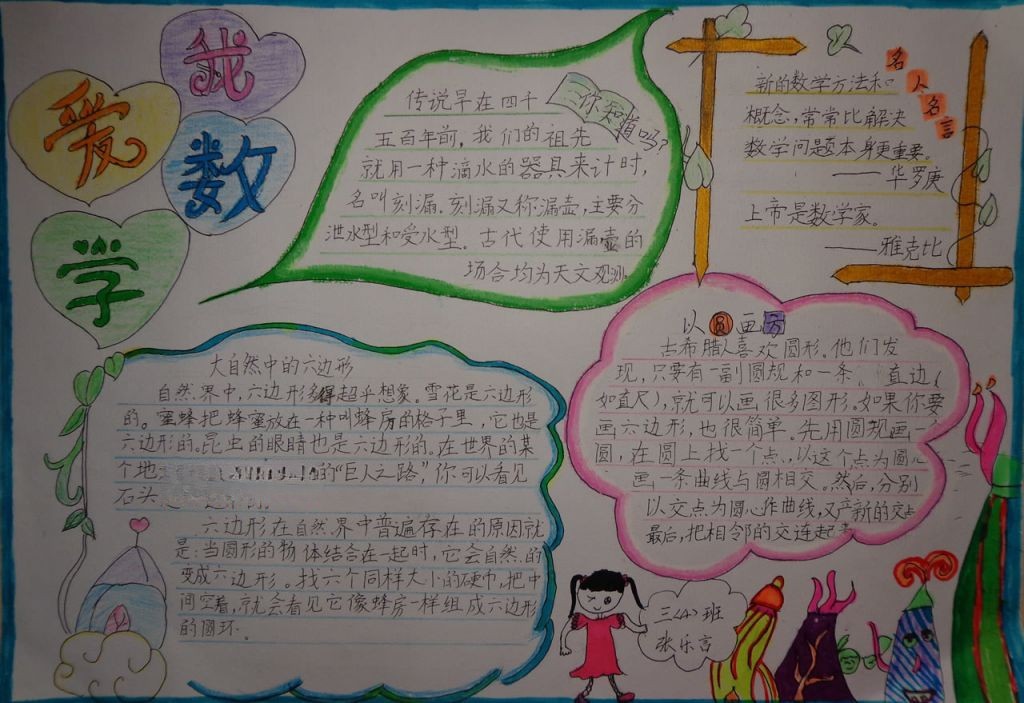 我爱数学
你知道吗?
传说早在四千
五百年前,我们的祖先
就用一种滴水的器具来计时,
名叫刻漏.刻漏又称漏壶,主要分
泄水型和受水型。古代使用漏壶的
场合均为天文观测
名人名言
新的数学方法和
概念,常常比解决
数学问题本身更重要。
——华罗庚
上帝是数学家。
——雅克比
大自然中的六边形
自然界中,六边形多得超乎想象。雪花是六边形
的。蜜蜂把蜂蜜放在一种叫蜂房的格子里,它也是
六边形的。昆虫的眼睛也是六边形的。在世界的某
个地
的“巨人之路”,你可以看见
石头
六边形在自然界中普遍存在的原因就
是:当圆形的物体结合在一起时,它会自然的
变成六边形。找六个同样大小的硬币,把中
间空着,就会看见它像蜂房一样组成六边形
的圆环.
以圆画方
古希腊人喜欢圆形。他们发
现,只要有一副圆规和一条直边(
如直尺),就可以画很多图形。如果你要
画六边形,也很简单。先用圆规画一
圆,在圆上找一个点,以这个点为圆心
画一条曲线与圆相交。然后,分别
以交点为圆心作曲线,又产新的交点
最后,把相邻的交连起来
三〈4〉班
张乐言